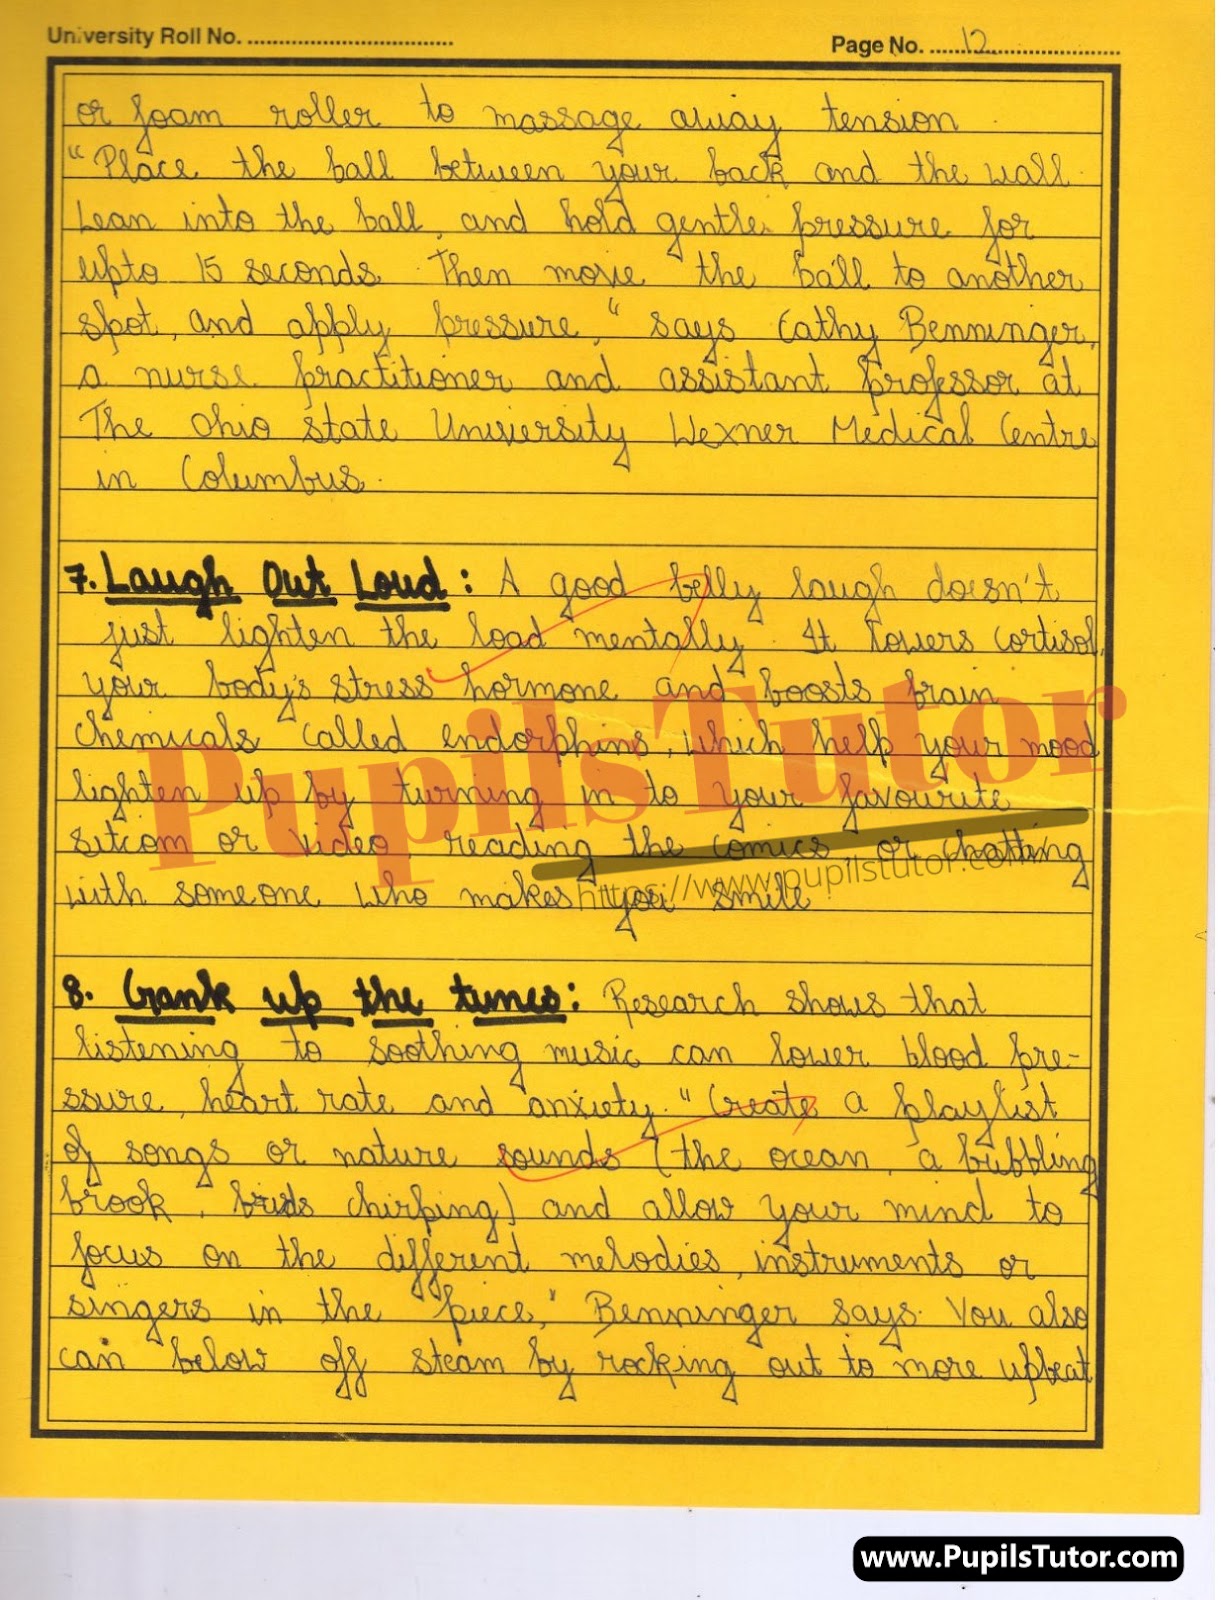 University Roll No. ................................
Page No. ....12....................
or foam roller to massage away tension.
"Place the ball between your back and the wall.
Lean into the ball, and hold gentle pressure for
upto 15 seconds. Then move the ball to another
spot, and apply pressure," says Cathy Benninger,
a nurse practitioner and assistant professor at
The Ohio State University Wexner Medical Centre
in Columbus.
7. Laugh Out Loud : A good belly laugh doesn't
just lighten the load mentally. It lowers cortisol,
your body's stress hormone and boosts brain
chemicals called endorphins, which help your mood
lighten up by turning in to your favourite
sitcom or video, reading the comics or chatting
with someone who makes you smile.
8. Crank up the tunes: Research shows that
listening to soothing music can lower blood pre-
ssure, heart rate and anxiety. "Create a playlist
of songs or nature sounds (the ocean, a bubbling
brook, brids chirping) and allow your mind to
focus on the different melodies, instruments or
singers in the piece," Benninger says. You also
can below off steam by rocking out to more upbeat
PupilsTutor
https://www.pupilstutor.com/
www.PupilsTutor.com